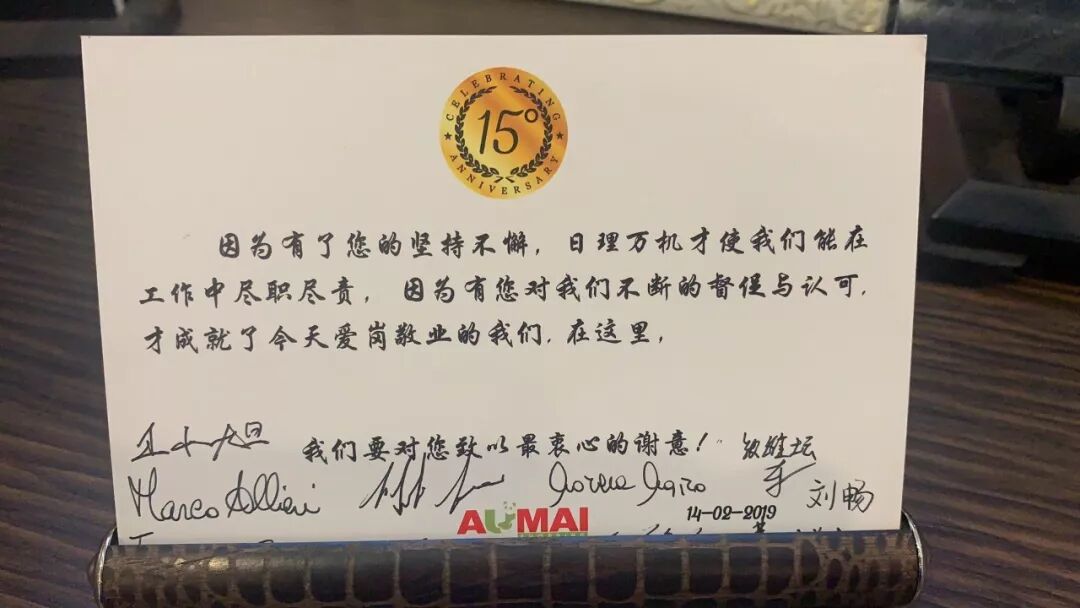 CELEBRATING
15°
ANNIVERSARY
因为有了您的坚持不懈，日理万机才使我们能在
工作中尽职尽责，因为有您对我们不断的督促与认可，
才成就了今天爱岗敬业的我们，在这里，
我们要对您致以最衷心的谢意！
Marco Allieri
刘畅
AUMAI
14-02-2019